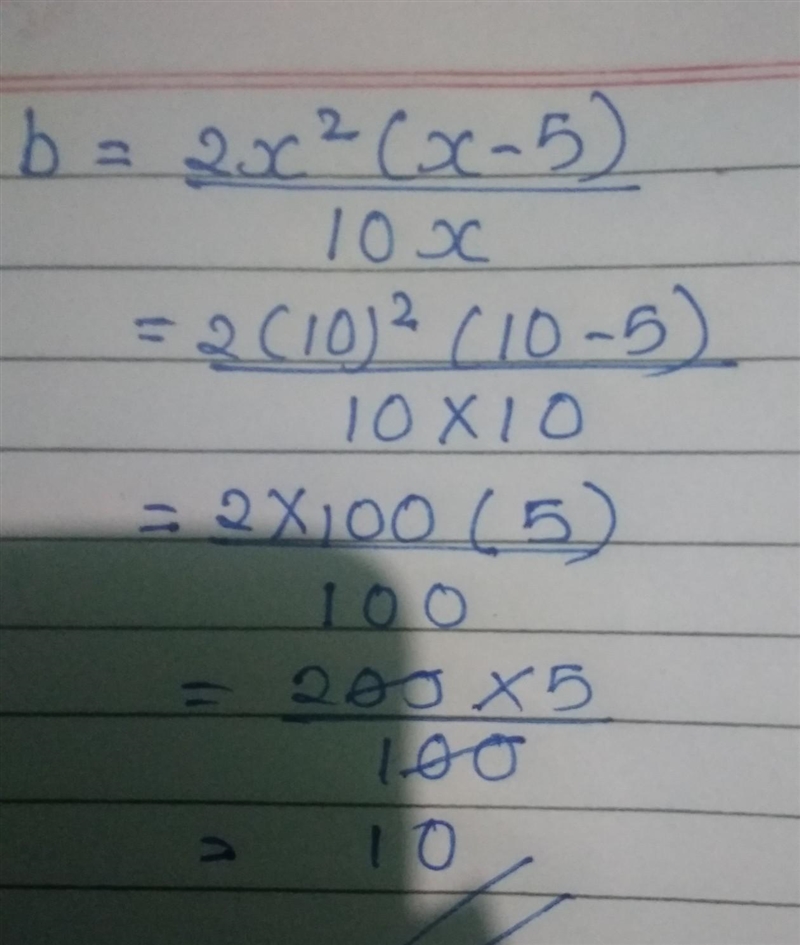 b = 2x² (x - 5)
10 x
= 2 (10)² (10 - 5)
10 × 10
= 2 × 100 ( 5 )
100
= 200 × 5
100
= 10